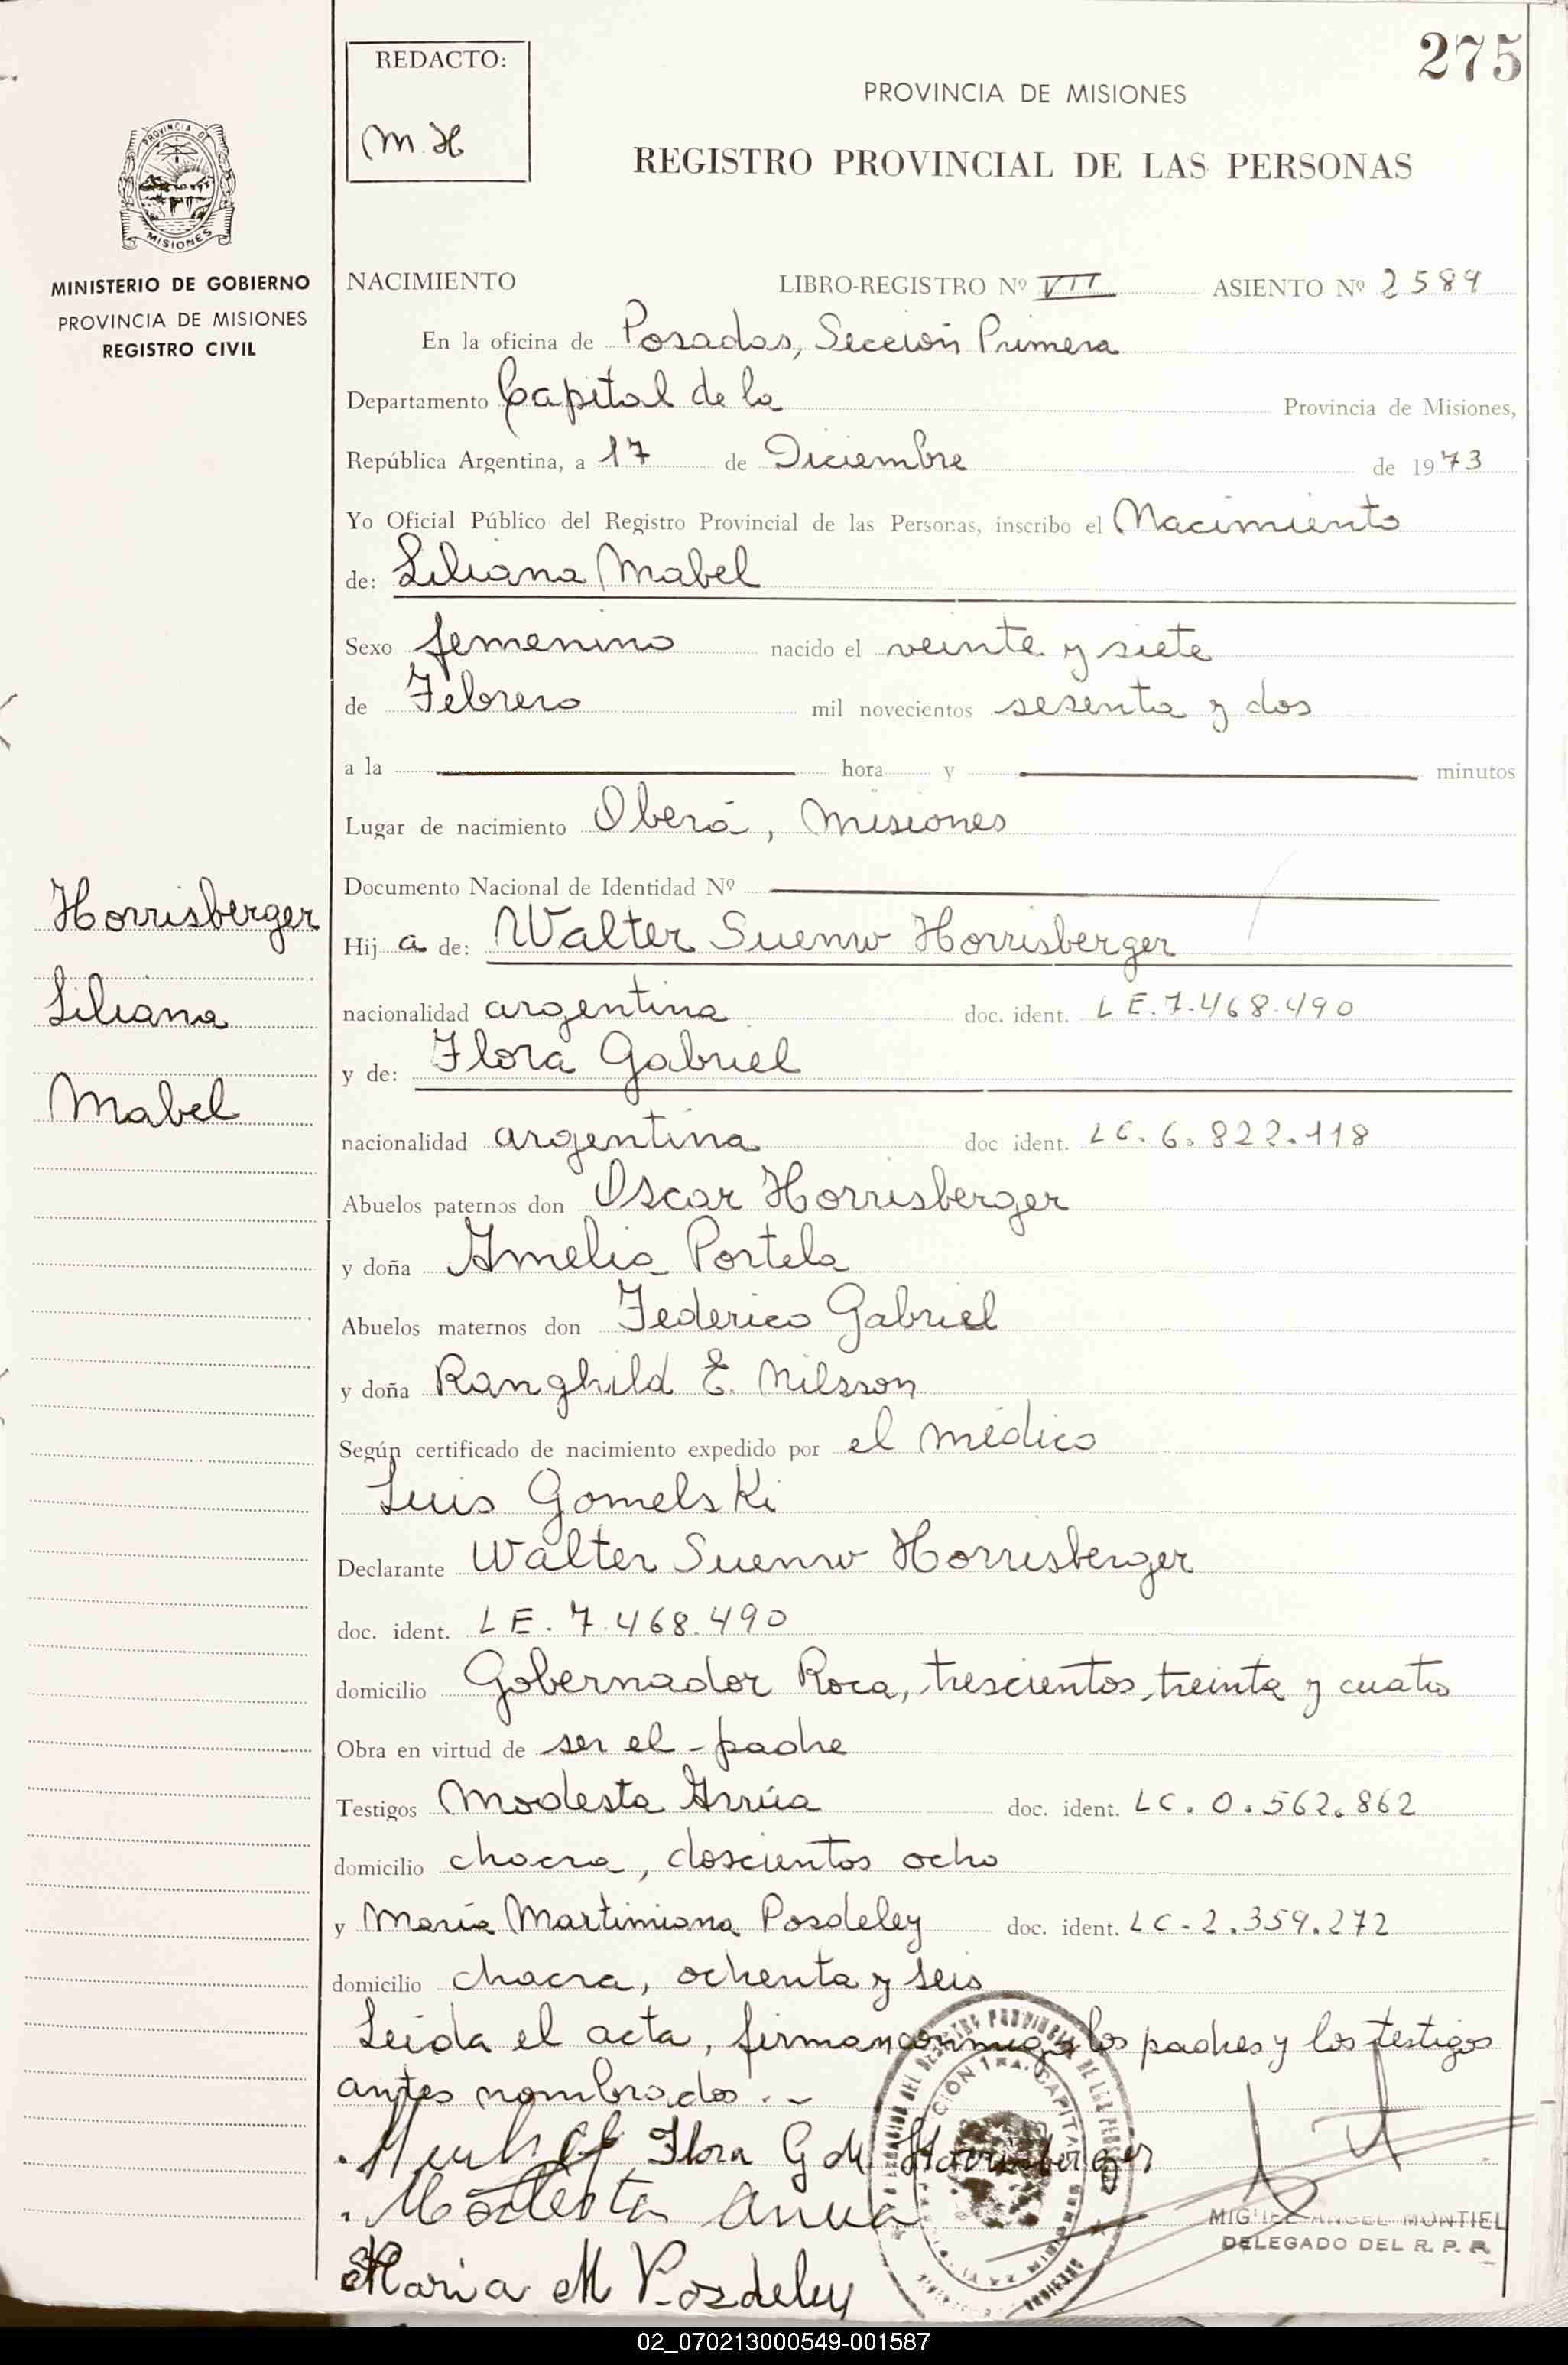 275
REDACTO:
M.H
PROVINCIA DE MISIONES
REGISTRO PROVINCIAL DE LAS PERSONAS
PROVINCIA DE
MISIONES
MINISTERIO DE GOBIERNO
PROVINCIA DE MISIONES
REGISTRO CIVIL
NACIMIENTO LIBRO-REGISTRO Nº VII ASIENTO Nº 2589
En la oficina de Posadas, Sección Primera
Departamento Capital de la Provincia de Misiones,
República Argentina, a 17 de Diciembre de 1973
Yo Oficial Público del Registro Provincial de las Personas, inscribo el Nacimiento
de: Liliana Mabel
Sexo femenino nacido el veinte y siete
de Febrero mil novecientos sesenta y dos
a la hora y minutos
Lugar de nacimiento Oberá, Misiones
Documento Nacional de Identidad Nº
Horrisberger
Liliana
Mabel
Hij a de: Walter Suenw Horrisberger
nacionalidad argentina doc. ident. LE. 7.468.490
y de: Flora Gabriel
nacionalidad argentina doc ident. LC. 6.822.118
Abuelos paternos don Oscar Horrisberger
y doña Amelia Portela
Abuelos maternos don Federico Gabriel
y doña Ranghild E. Nilsson
Según certificado de nacimiento expedido por el médico
Luis Gomelski
Declarante Walter Suenw Horrisberger
doc. ident. LE. 7.468.490
domicilio Gobernador Roca, trescientos, treinta y cuatro
Obra en virtud de ser el padre
Testigos Modesta Arrúa doc. ident. LC. 0.562.862
domicilio chacra, doscientos ocho
y María Martimiana Posdeley doc. ident. LC-2.359.272
domicilio chacra, ochenta y seis
Leida el acta, firman conmigo los padres y los testigos
antes nombrados.-
Flora G de Horrisberger
Modesta Arrua
MIGUEL ANGEL MONTIEL
DELEGADO DEL R. P. P.
Maria M Posdeley
02_070213000549-001587